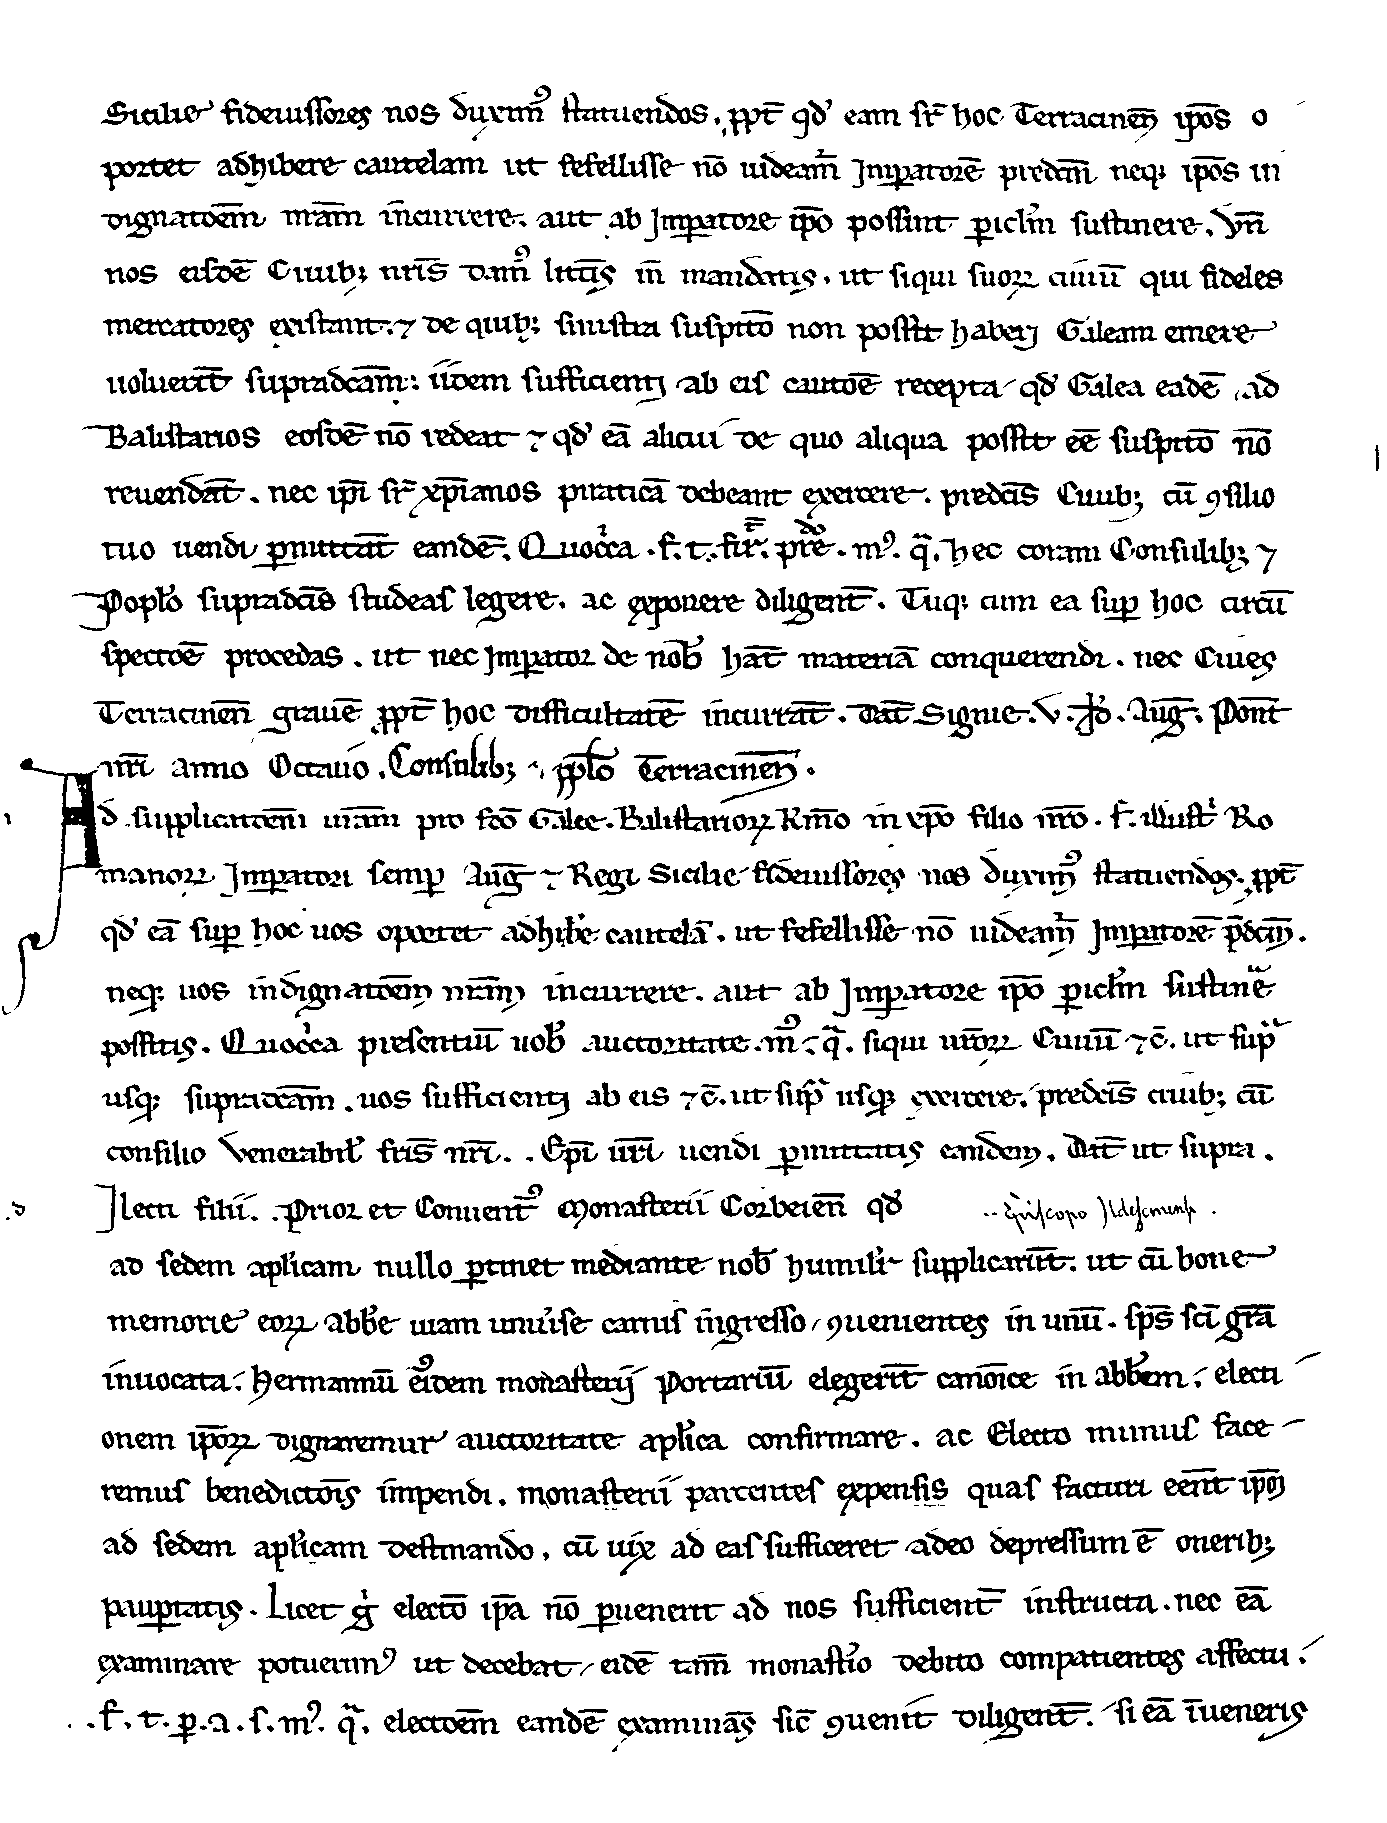 Sicilie fideiussores nos duximꝰ statuendos. ꝓpt̄ qd̓ eam sr̄ hoc Terracineñ ip̄os o
portet adhibere cautelam ut fefellisse nō uideam̄ Imꝑatorē predc̄m neqꝫ ip̄os in
dignatōem nr̄am incurrere. aut ab Imꝑatore ip̄o possint ꝑiclm̄ sustinere. Vn̄
nos eisdē Ciuibꝫ nr̄is damꝰ litt̄is in mandatis. ut siqui suoꝝ ciuiū qui fideles
mercatores existant. ⁊ de quibꝫ sinistra suspitō non possit haberi Galeam emere
uoluerīt supradc̄am: iidem sufficienti ab eis cautōe recepta qd̓ Galea eadē ad
Balistarios eosdē nō redeat ⁊ qd̓ eā alicui de quo aliqua possit eē suspitō nō
reuendāt. nec ip̄i sr̄ xp̄ianos piraticā debeant exercere. predc̄is Ciuibꝫ cū ꝯsilio
tuo uendi ꝑmittāt eandē. Quocc̓a .f. t. mꝰ. q̄. hec coram Consulibꝫ ⁊
Popl̓o supradc̄is studeas legere. ac exponere diligent̄. Tuqꝫ cum ea suꝑ hoc circū
spectōe procedas. ut nec Imꝑator de nob̓ hāt materiā conquerendi. nec Ciues
Terracineñ grauē ꝓpt̄ hoc difficultatē incurrāt. Dat̄ Signie. V. Id̓. Auḡ. Pont̄
nr̄i anno Octauo. Consulibꝫ ⁊ ppl̓o Terracineñ.
Ad supplicatōem ur̄am pro fc̄o Galee. Balistarioꝝ Km̄o in xp̄o filio nr̄o. f. illustr̓ Ro
manoꝝ Imꝑatori semꝑ Auḡ ⁊ Regi Sicilie fideiussores nos duximꝰ statuendos. ꝓpt̄
qd̓ eā suꝑ hoc uos oportet adhib̓e cautelā. ut fefellisse nō uideam̄ Imꝑatorē p̄dc̄m.
neqꝫ uos indignatōem nr̄am incurrere. aut ab Imꝑatore ip̄o ꝑiclm̄ sustinē
possitis. Quocc̓a presentiū uob̓ auctoritate .mꝰ. q̄. siqui ur̄oꝝ Ciuiū ⁊c̄. ut sup̄
usqꝫ supradc̄am. uos sufficienti ab eis ⁊c̄. ut sup̄ usqꝫ exercere. predc̄is ciuibꝫ cū
consilio Venerabil̓ fr̄is nr̄i. . Ep̄i ur̄i uendi ꝑmittatis eandem. Dat̄ ut supra.
Ilecti filii. . Prior et Conuentꝰ Monasterii Corbeieñ qd̓ .. Episcopo Ildesemensi .
ad sedem apl̓icam nullo ꝑtinet mediante nob̓ humilit̓ supplicarūt. ut cū bone
memorie eoꝝ abb̓e uiam uniu̓se carnis ingresso, ꝯuenientes in unū. sp̄s sc̄i gr̄a
inuocata. Hermannū eiꝰdem monasterij Portariū elegerīt canōice in abb̓em. electi
onem ip̄oꝝ dignaremur auctoritate apl̓ica confirmare. ac Electo munus face
remus benedictōis impendi. monasterii parcentes expensis quas facturi eēnt ip̄m
ad sedem apl̓icam destinando. cū uix ad eas sufficeret adeo depressum ē oneribꝫ
pauꝑtatis. Licet g̓ electō ip̄a nō ꝑuenerit ad nos sufficient̄ instructa. nec eā
examinare potuerimꝰ ut decebat, eidē tam̄ monast̓io debito compatientes affectu.
. .f. t. ꝑ. a. s. mꝰ. q̄. electōem eandē examinās sic̄ ꝯuenit diligent̄. si eā īueneris